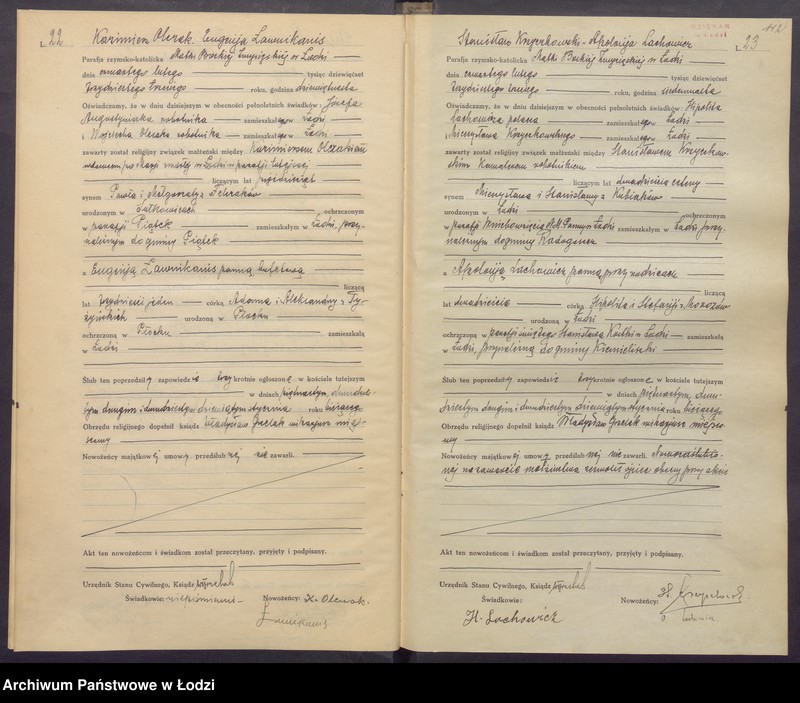 22
Kazimierz Olczak. Eugenija Ławnikanis
L
Parafja rzymsko-katolicka Matki Boskiej Zwycięskiej w Łodzi
dnia czwartego lutego tysiąc dziewięćset
trzydziestego trzeciego roku, godzina dziewiętnasta
Oświadczamy, że w dniu dzisiejszym w obecności pełnoletnich świadków: Józefa
Augustyniaka robotnika zamieszkałego w Łodzi
i Wojciecha Olczaka robotnika zamieszkałego w Łodzi
zawarty został religijny związek małżeński między Kazimierzem Olczakiem
w Łodzi parafji tutejszej
liczącym lat pięćdziesiąt
synem Pawła i Małgorzaty z
urodzonym w ochrzczonym
w parafji Piątek zamieszkałym w Łodzi, przy-
należnym do gminy Piątek
a Eugeniją Ławnikanis panną
liczącą
lat trzydzieści jeden córką Adama i Aleksandry z Ty-
szyńskich urodzoną w Płocku
ochrzczoną w Płocku zamieszkałą
w Łodzi
Ślub ten poprzedziły zapowiedzie trzykrotnie ogłoszone w kościele tutejszym
w dniach piętnastym, dwudzie-
stym drugim i dwudziestym dziewiątym stycznia roku bieżącego
Obrzędu religijnego dopełnił ksiądz Władysław Grelak wikarjusz miej-
scowy
Nowożeńcy majątkowej umowy przedślubnej nie zawarli.
Akt ten nowożeńcom i świadkom został przeczytany, przyjęty i podpisany.
Urzędnik Stanu Cywilnego, Ksiądz
Świadkowie: niepiśmienni Nowożeńcy: K. Olczak.
Ławnikanis
112
23
Stanisław Krzyczkowski - Apolonija Lachowicz
L
Parafja rzymsko-katolicka Matki Boskiej Zwycięskiej w Łodzi
dnia czwartego lutego tysiąc dziewięćset
trzydziestego trzeciego roku, godzina siedemnasta
Oświadczamy, że w dniu dzisiejszym w obecności pełnoletnich świadków: Hipolita
Lachowicza zamieszkałego w Łodzi
i Mieczysława Krzyczkowskiego zamieszkałego w Łodzi
zawarty został religijny związek małżeński między Stanisławem Krzyczkow-
skim kawalerem robotnikiem
liczącym lat dwadzieścia cztery
synem Mieczysława i Stanisławy z Kubiaków
urodzonym w Łodzi ochrzczonym
w parafji Wniebowzięcia N.M. Panny w Łodzi zamieszkałym w Łodzi, przy-
należnym do gminy Radogoszcz
a Apoloniją Lachowicz panną przy rodzicach
liczącą
lat dwadzieścia córką Hipolita i Stefanji z Mrozów
urodzoną w Łodzi
ochrzczoną w parafji świętego Stanisława Kostki w Łodzi zamieszkałą
w Łodzi, przynależną do gminy
Ślub ten poprzedziły zapowiedzie trzykrotnie ogłoszone w kościele tutejszym
w dniach piętnastym, dwu-
dziestym drugim i dwudziestym dziewiątym stycznia roku bieżącego
Obrzędu religijnego dopełnił ksiądz Władysław Grelak wikarjusz miejsco-
wy
Nowożeńcy majątkowej umowy przedślubnej nie zawarli. Nowozaślubio-
nej na zawarcie małżeństwa zezwolił ojciec obecny przy akcie
Akt ten nowożeńcom i świadkom został przeczytany, przyjęty i podpisany.
Urzędnik Stanu Cywilnego, Ksiądz
Świadkowie: Nowożeńcy:
H. Lachowicz
Archiwum Państwowe w Łodzi